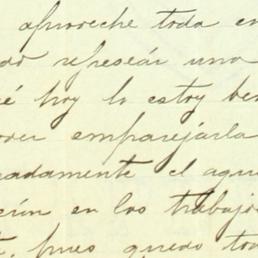 aproveche toda en
refresar una
é hoy lo estoy
emparejarla
adamente el ague
ún en los trabajo
, pues quedo to